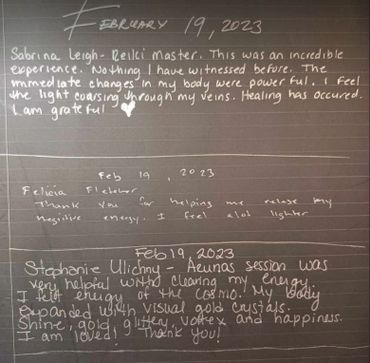 FEBRUARY 19, 2023
Sabrina Leigh - Reiki Master. This was an incredible
experience. Nothing I have witnessed before. The
immediate changes in my body were powerful. I feel
the light coarsing through my veins. Healing has occured.
I am grateful
Feb 19, 2023
Felicia Fletcher
Thank you for helping me relase my
negitive energy. I feel alot lighter
Feb 19, 2023
Stephanie Ulichny - Aeunas session was
very helpful with clearing my energy
I felt energy of the cosmo. My body
expanded with visual gold crystals.
Shine, gold, glittery vortex and happiness.
I am loved! Thank you!